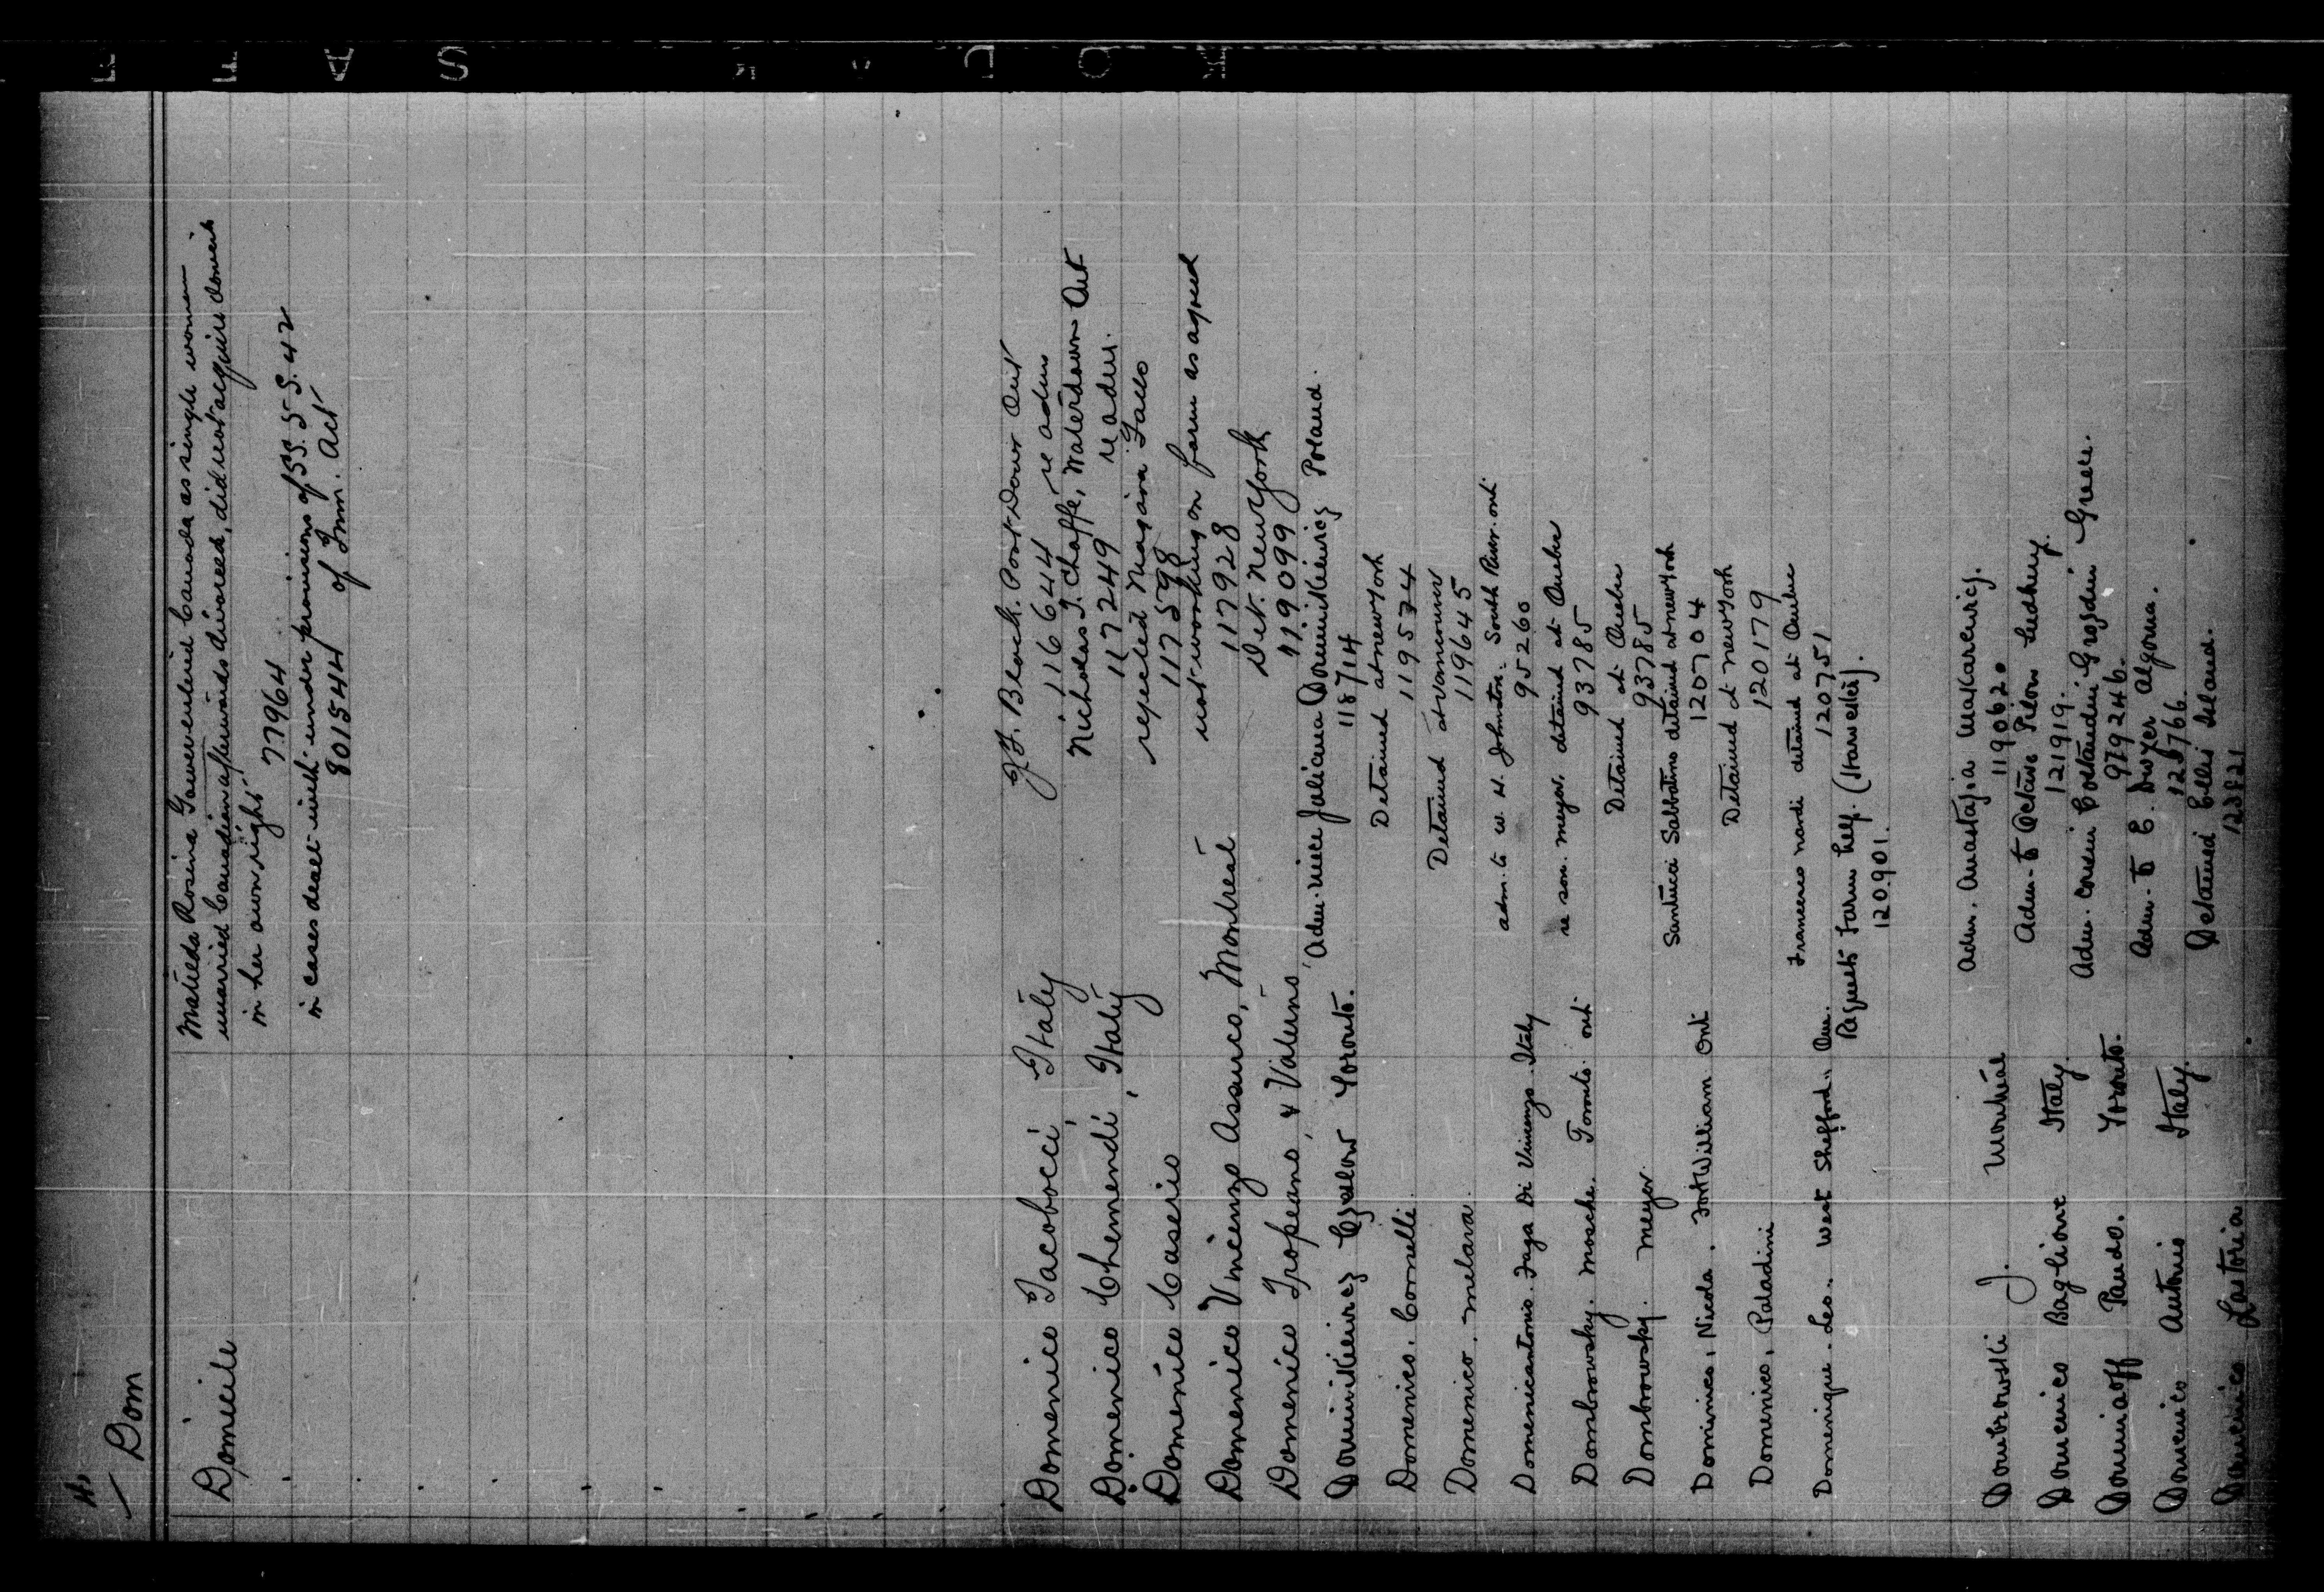 H.
Dom
Domicile
Matilda Rosina Gower entered Canada as single woman
married Canadian afterwards divorced, did not acquire domicile
in her own right
77964
in cases dealt with under provisions of SS. 5-S. 42
801544 of Imm. Act
Domenico Iacobocci, Italy
J.F. Black. Port Dover Ont
116644 re adm
Domenico Chemendi, Italy
Nicholas J. Chaffe, Waterdown Ont
117249 re adm.
Domenico Caserio
rejected Niagara Falls
117598
Domenico Vincenzo Assauco, Montreal
not working on farm as agreed
117928
Domenico Tropeano, & Valerino
Det. New York
119099
Dominikiewicz Czeslow Toronto.
Adm. niece Julicana Dominikiewicz Poland.
118714
Domenico, Cornelli.
Detained at New York
119574
Domenico, Melara.
Detained at Vancouver
119645
Domenicantonio. Faga Di Vincenzo. Italy
adm. to W. H. Johnston. South River. Ont
95260
Dombrowsky. Mosche. Toronto. Ont
re son. Meyer. detained at Quebec
93785
Dombrowsky. Meyer.
Detained at Quebec
93785
Dominico, Nicola. Fort William Ont
Santucci Sabbatino detained at New York
120704
Domenico, Paladini
Detained at New York
120179
Domenique. Leo.. West Shefford.. Que.
Francesco Nardi detained at Quebec
120751
Requests Farm help. (Harvester).
120901.
Dombrowski J. Montreal
Adm. Anastazia Makarewicz.
119062°
Domenico Baglione Italy.
Adm. to Octave Pilon Sudbury.
121919.
Dominoff Pando. Toronto.
Adm. cousin Costandin Grozdin Greece.
979246.
Domenico Antonio Italy.
Adm. to E. Dwyer Algoma.
123766.
Domenico Lastoria
Detained Ellis Island.